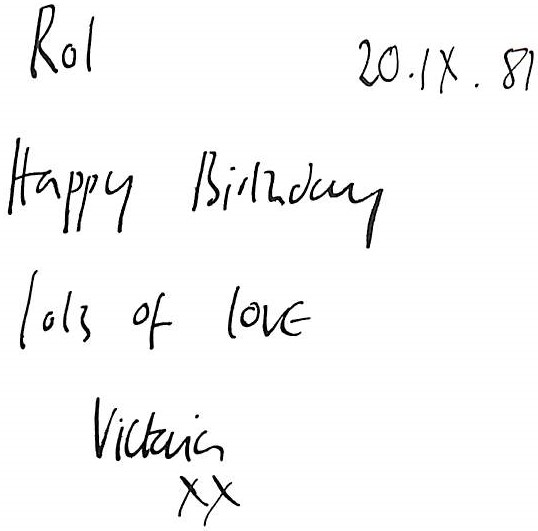 Rol 20.IX.81
Happy Birthday
lots of love
Victoria
XX